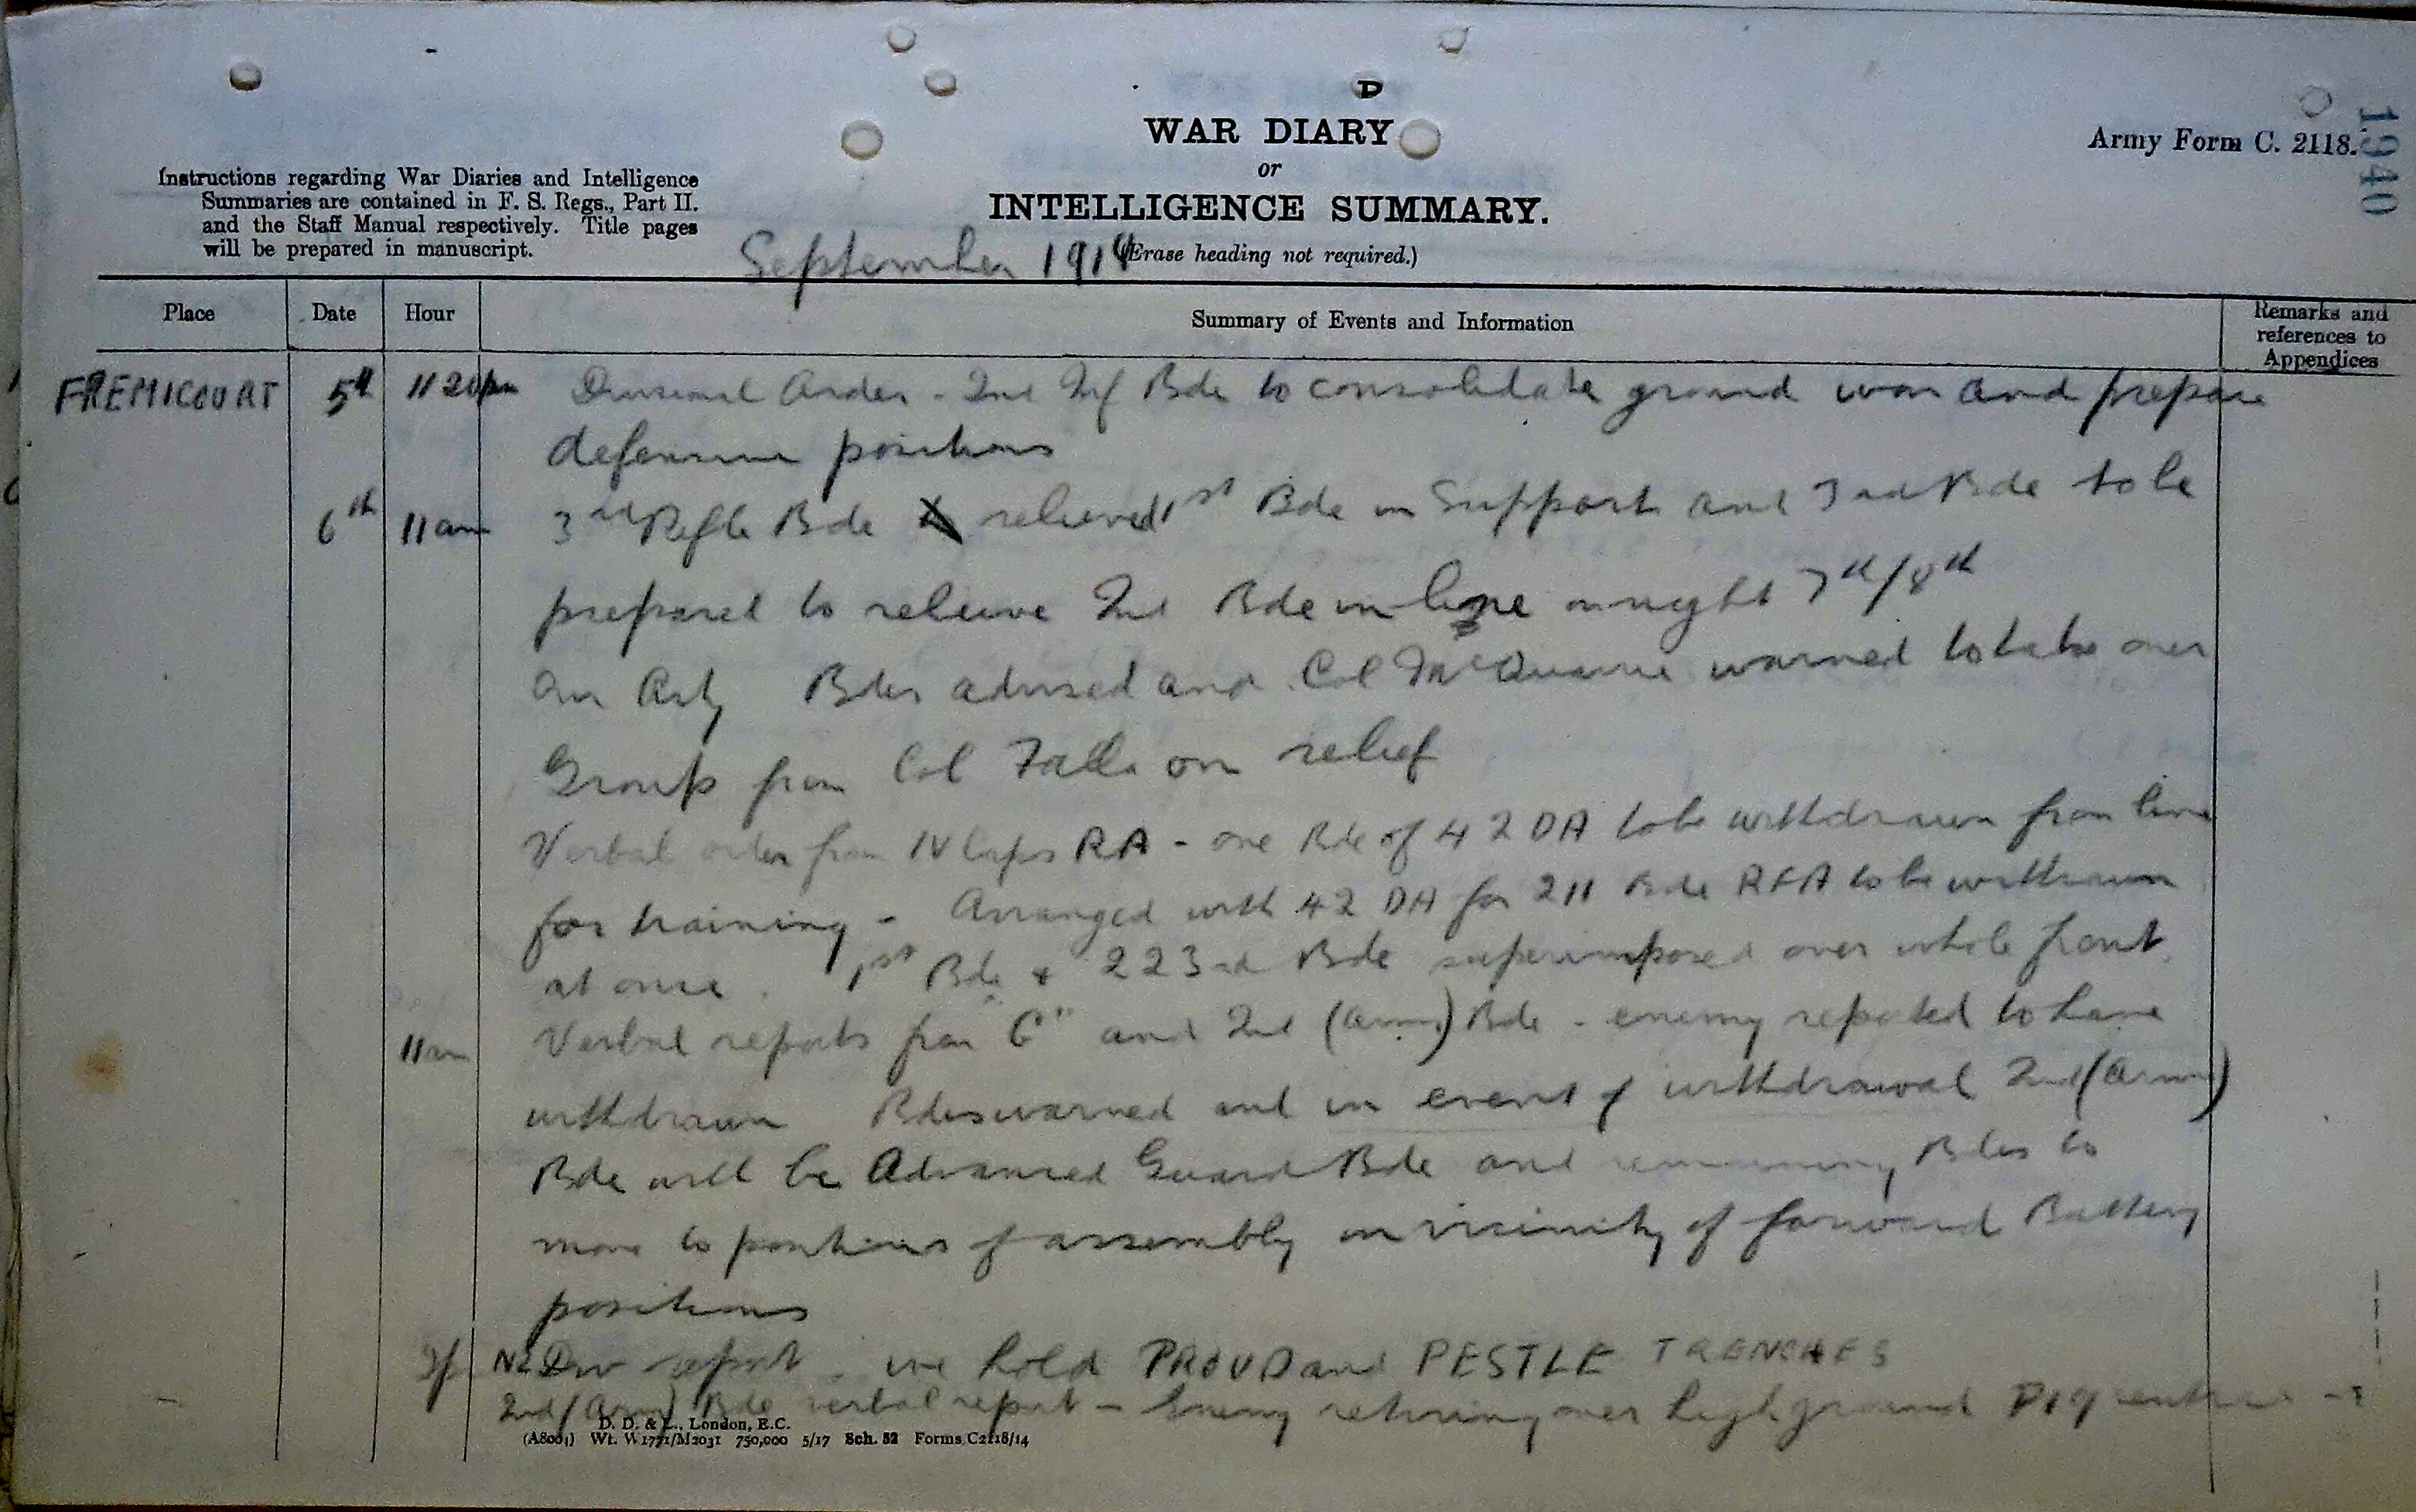 D
WAR DIARY
or
INTELLIGENCE SUMMARY.
(Erase heading not required.)
Army Form C. 2118.
1940
Instructions regarding War Diaries and Intelligence
Summaries are contained in F. S. Regs., Part II.
and the Staff Manual respectively. Title pages
will be prepared in manuscript.
September 1918
Place Date Hour Summary of Events and Information Remarks and references to Appendices
FREMICOURT 5th 11 20pm Divisional Order - 2nd Inf Bde to consolidate ground won and prepare
defensive positions
6th 11am 3rd Rifle Bde relieved 1st Bde in Support and 3rd Bde to be
prepared to relieve 2nd Bde in line on night 7th/8th
Our Arty Bdes advised and Col McQuarrie warned to take over
Group from Col Falla on relief
Verbal order from IV Corps RA - one Bde of 42 DA to be withdrawn from line
for training - Arranged with 42 DA for 211 Bde RFA to be withdrawn
at once. 1st Bde + 223rd Bde superimposed over whole front.
11am Verbal reports from "G" and 2nd (Army) Bde - enemy reported to have
withdrawn Bdes warned and in event of withdrawal 2nd (Army)
Bde will be Advanced Guard Bde and remaining Bdes to
move to positions of assembly in vicinity of forward Battery
positions
NZ Div report we hold PROUD and PESTLE TRENCHES
2nd (Army) Bde verbal report - Enemy retiring over high ground
D. D. & L., London, E.C.
(A8001) Wt. W1771/M2031 750,000 5/17 Sch. 52 Forms/C2118/14